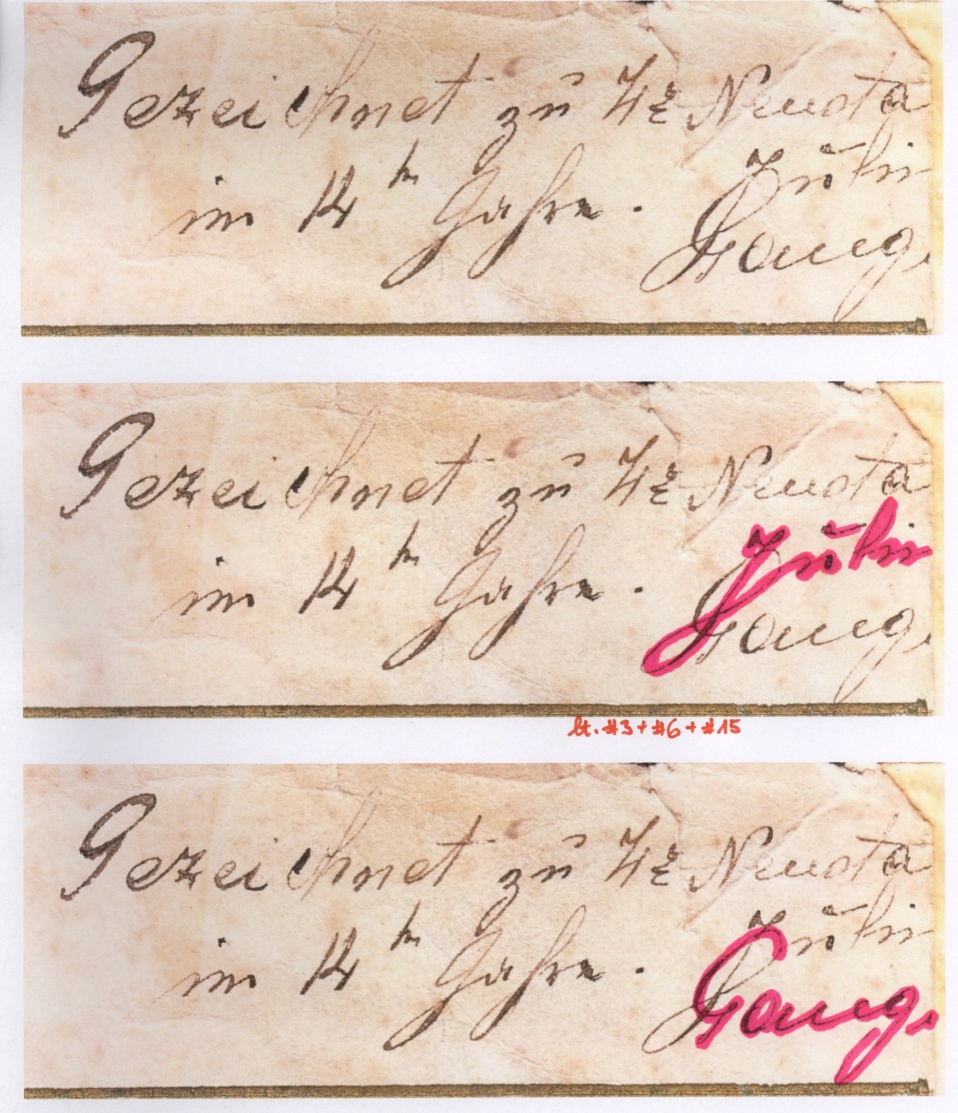 Gezeichnet zu Hz Neusta
im 14ten Jahre. Juli
Gezeichnet zu Hz Neusta
im 14ten Jahre. Juli
lt. #3 + #6 + #15
Gezeichnet zu Hz Neusta
im 14ten Jahre. Juli